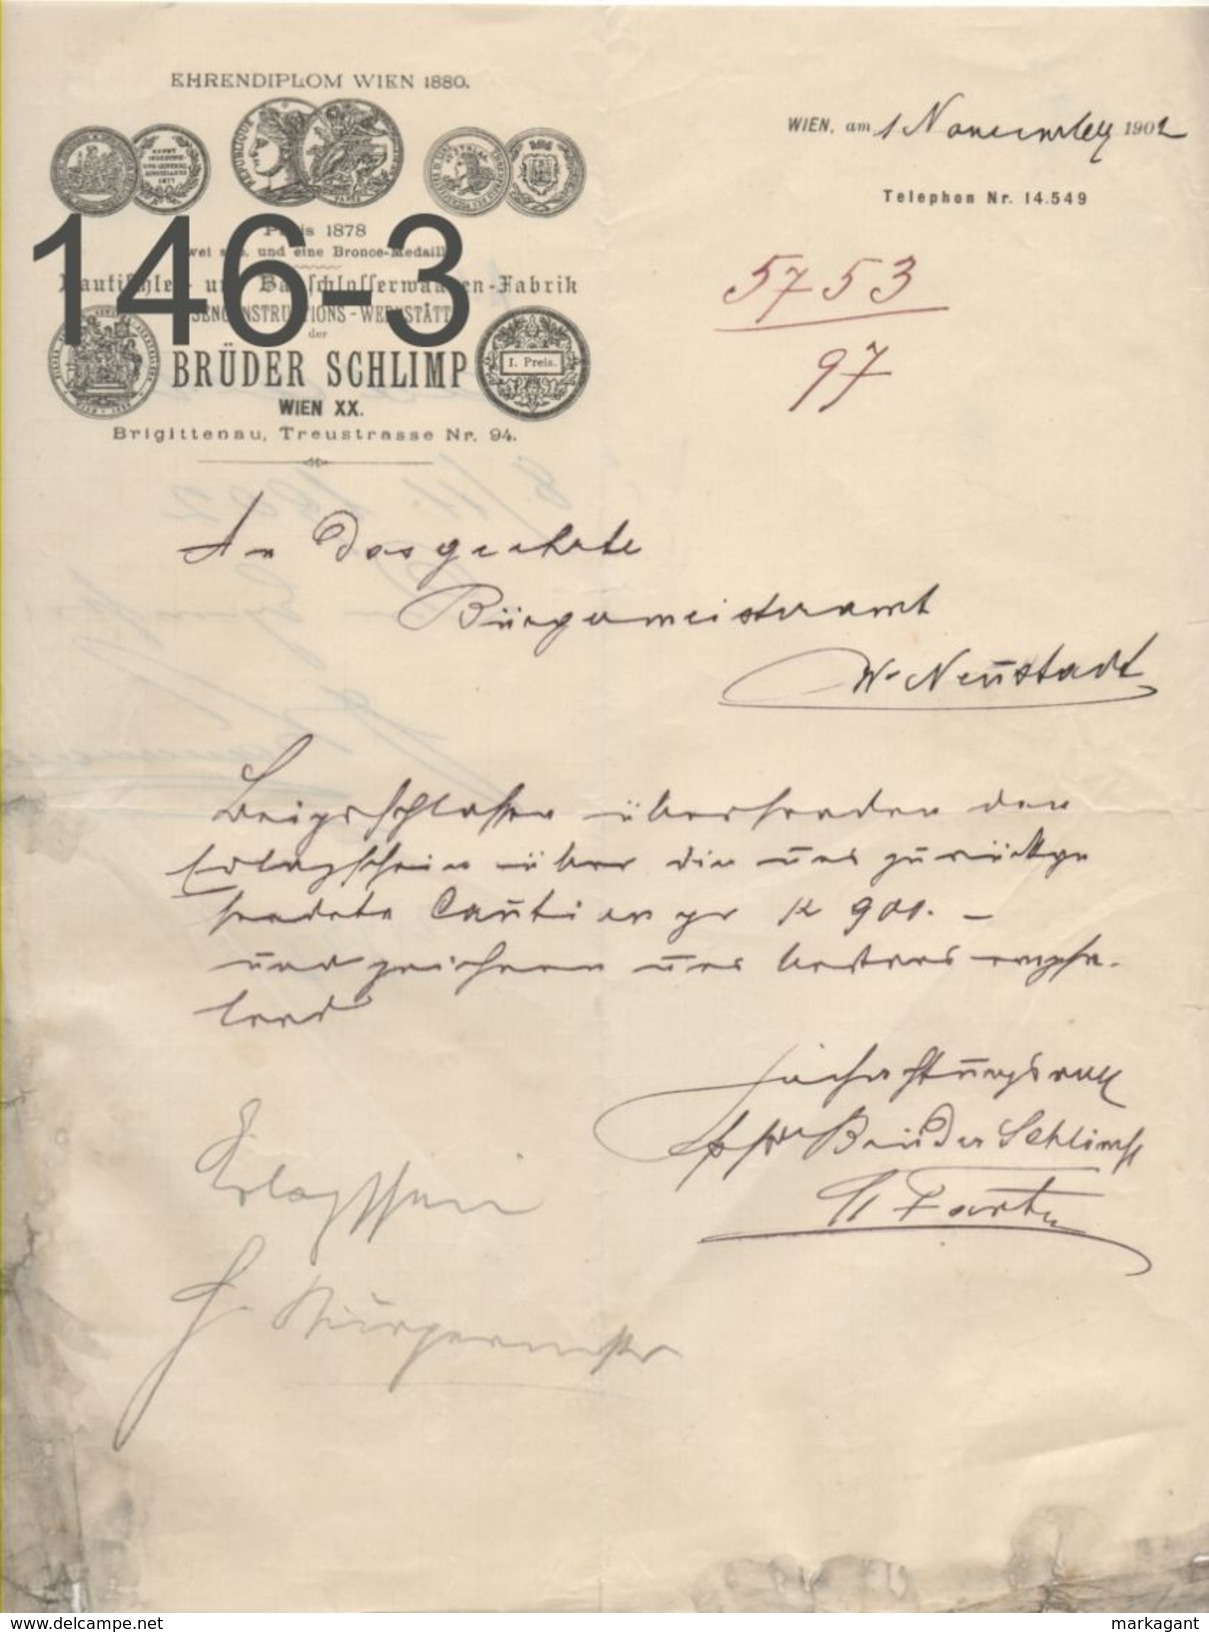 EHRENDIPLOM WIEN 1880.
REPUBLIQUE
PARIS
Paris 1878
und eine Bronce-Medaille
146-3
Bautischler- und Bauschlosserwaaren-Fabrik
EISENCONSTRUCTIONS-WERKSTÄTTE
der
BRÜDER SCHLIMP
I. Preis.
WIEN XX.
Brigittenau, Treustrasse Nr. 94.
WIEN, am 1 November 1902
Telephon Nr. 14.549
5753
97
An das geehrte
Bürgermeisteramt
W. Neustadt
Beigeschlossen übersenden den
Erlagschein über die uns zurückge
sendete Caution pr K 900.-
und zeichnen uns bestens empfe-
lend
Hochachtungsvoll
Brüder Schlimp
Erlagschein
H. Bürgermeister
146-3.jpg
markagant